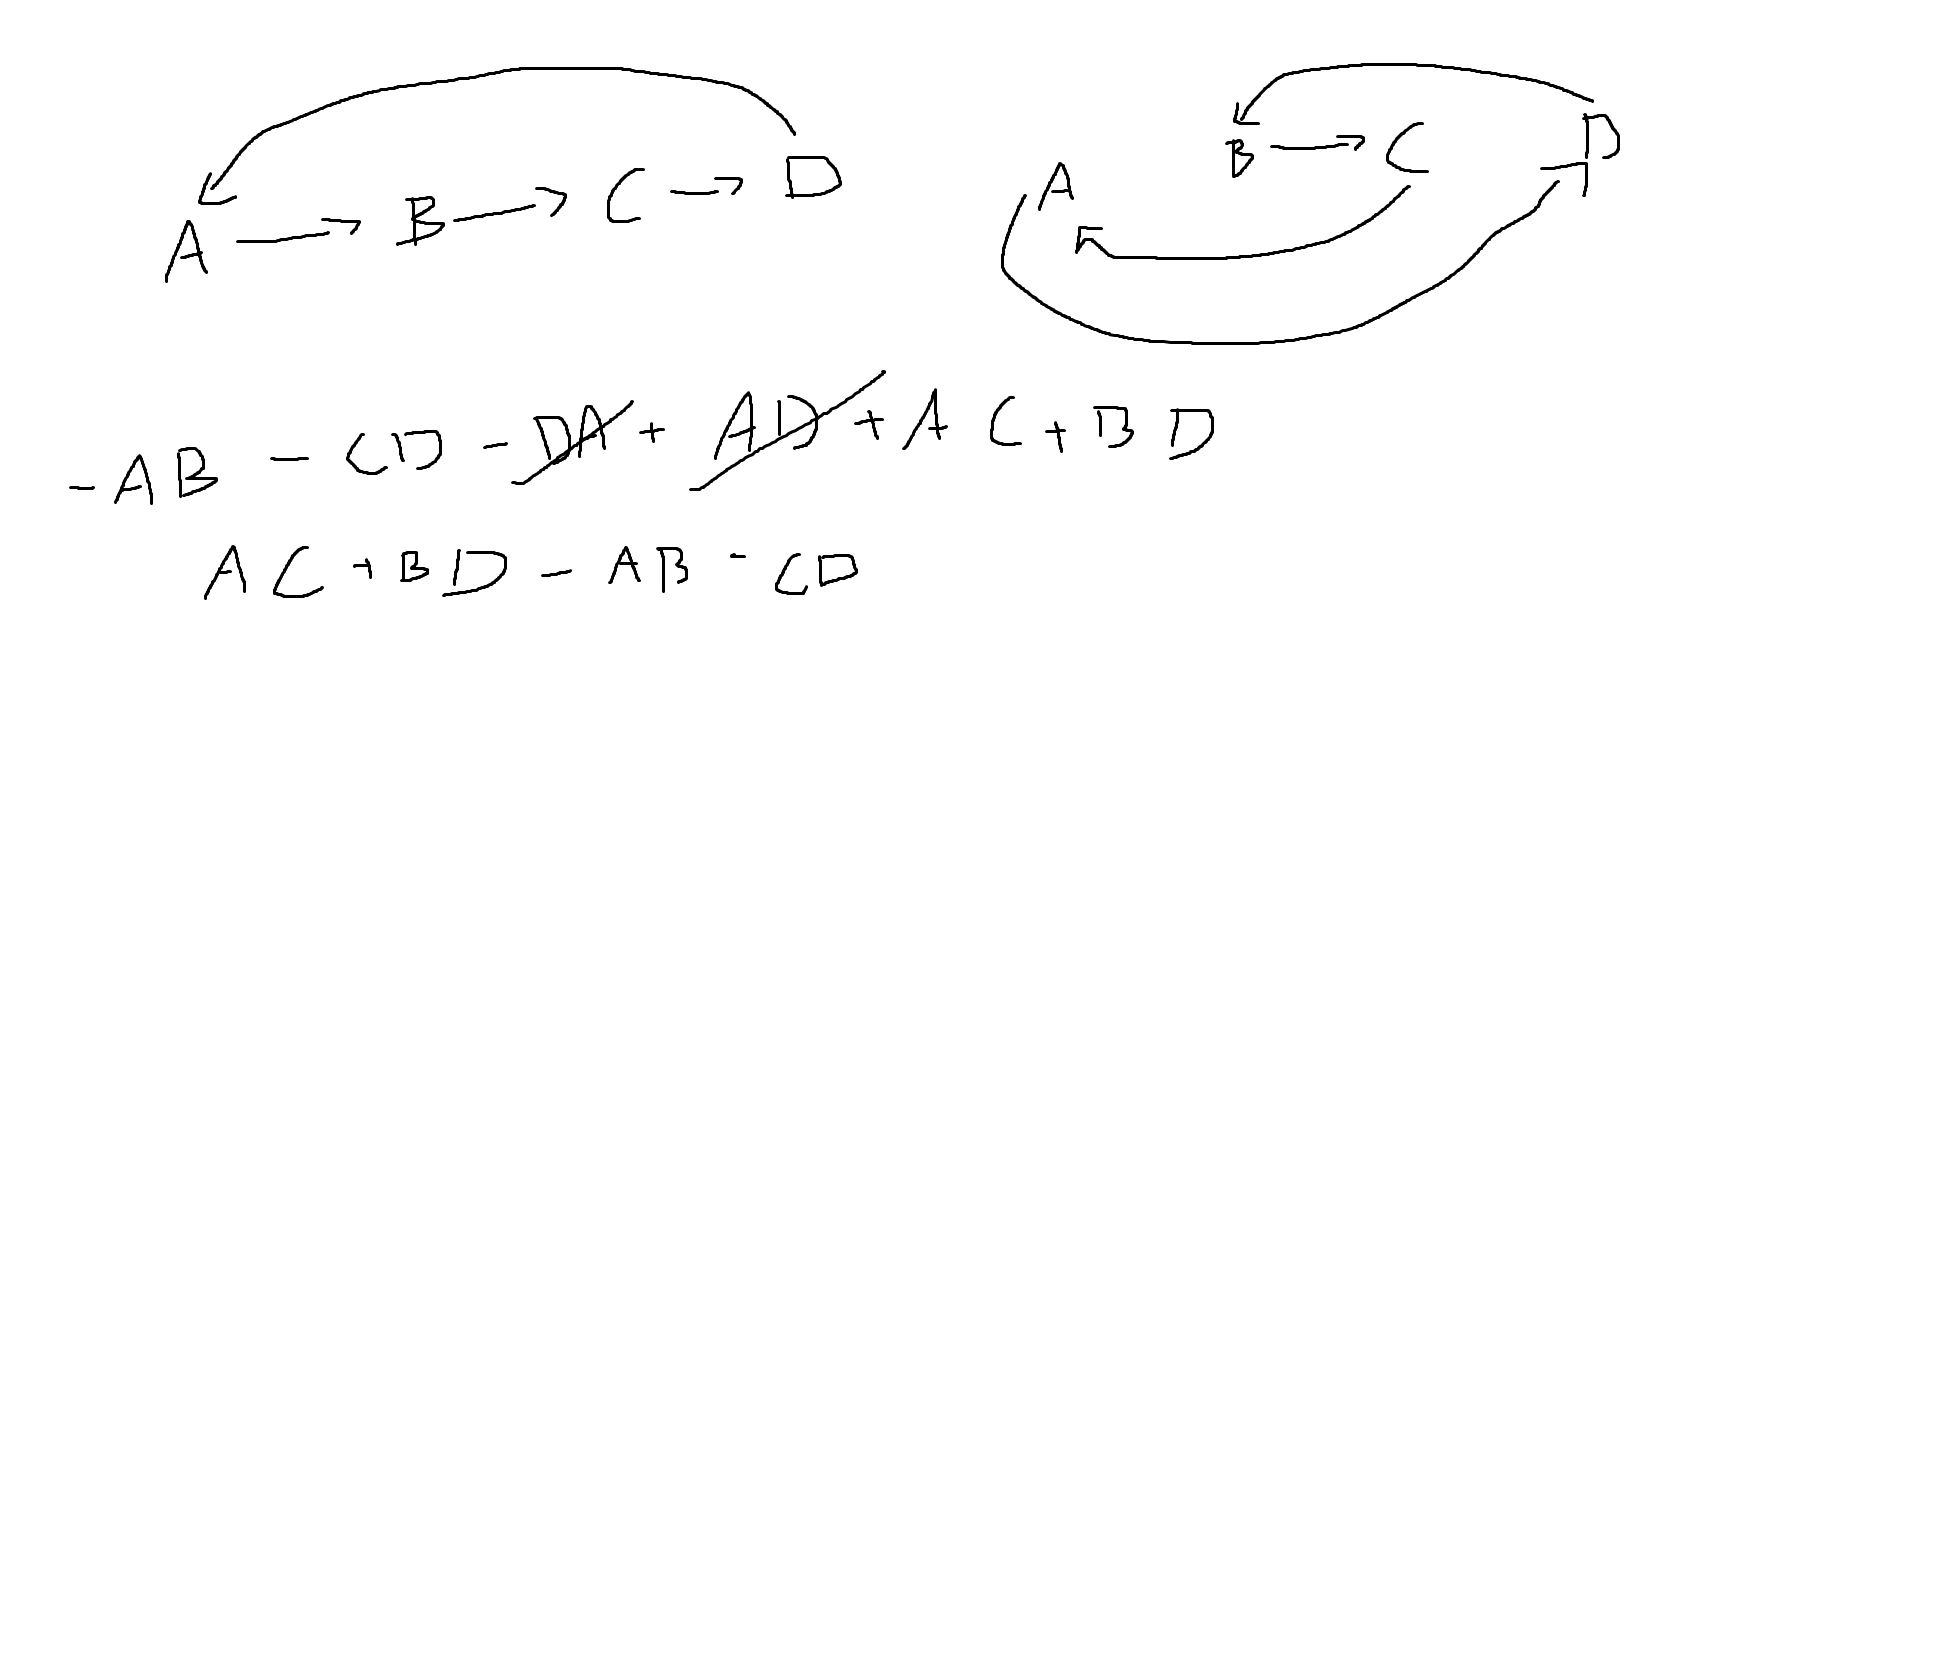 A → B → C → D
A B → C D
-AB - CD - DA + AD + AC + BD
AC + BD - AB - CD